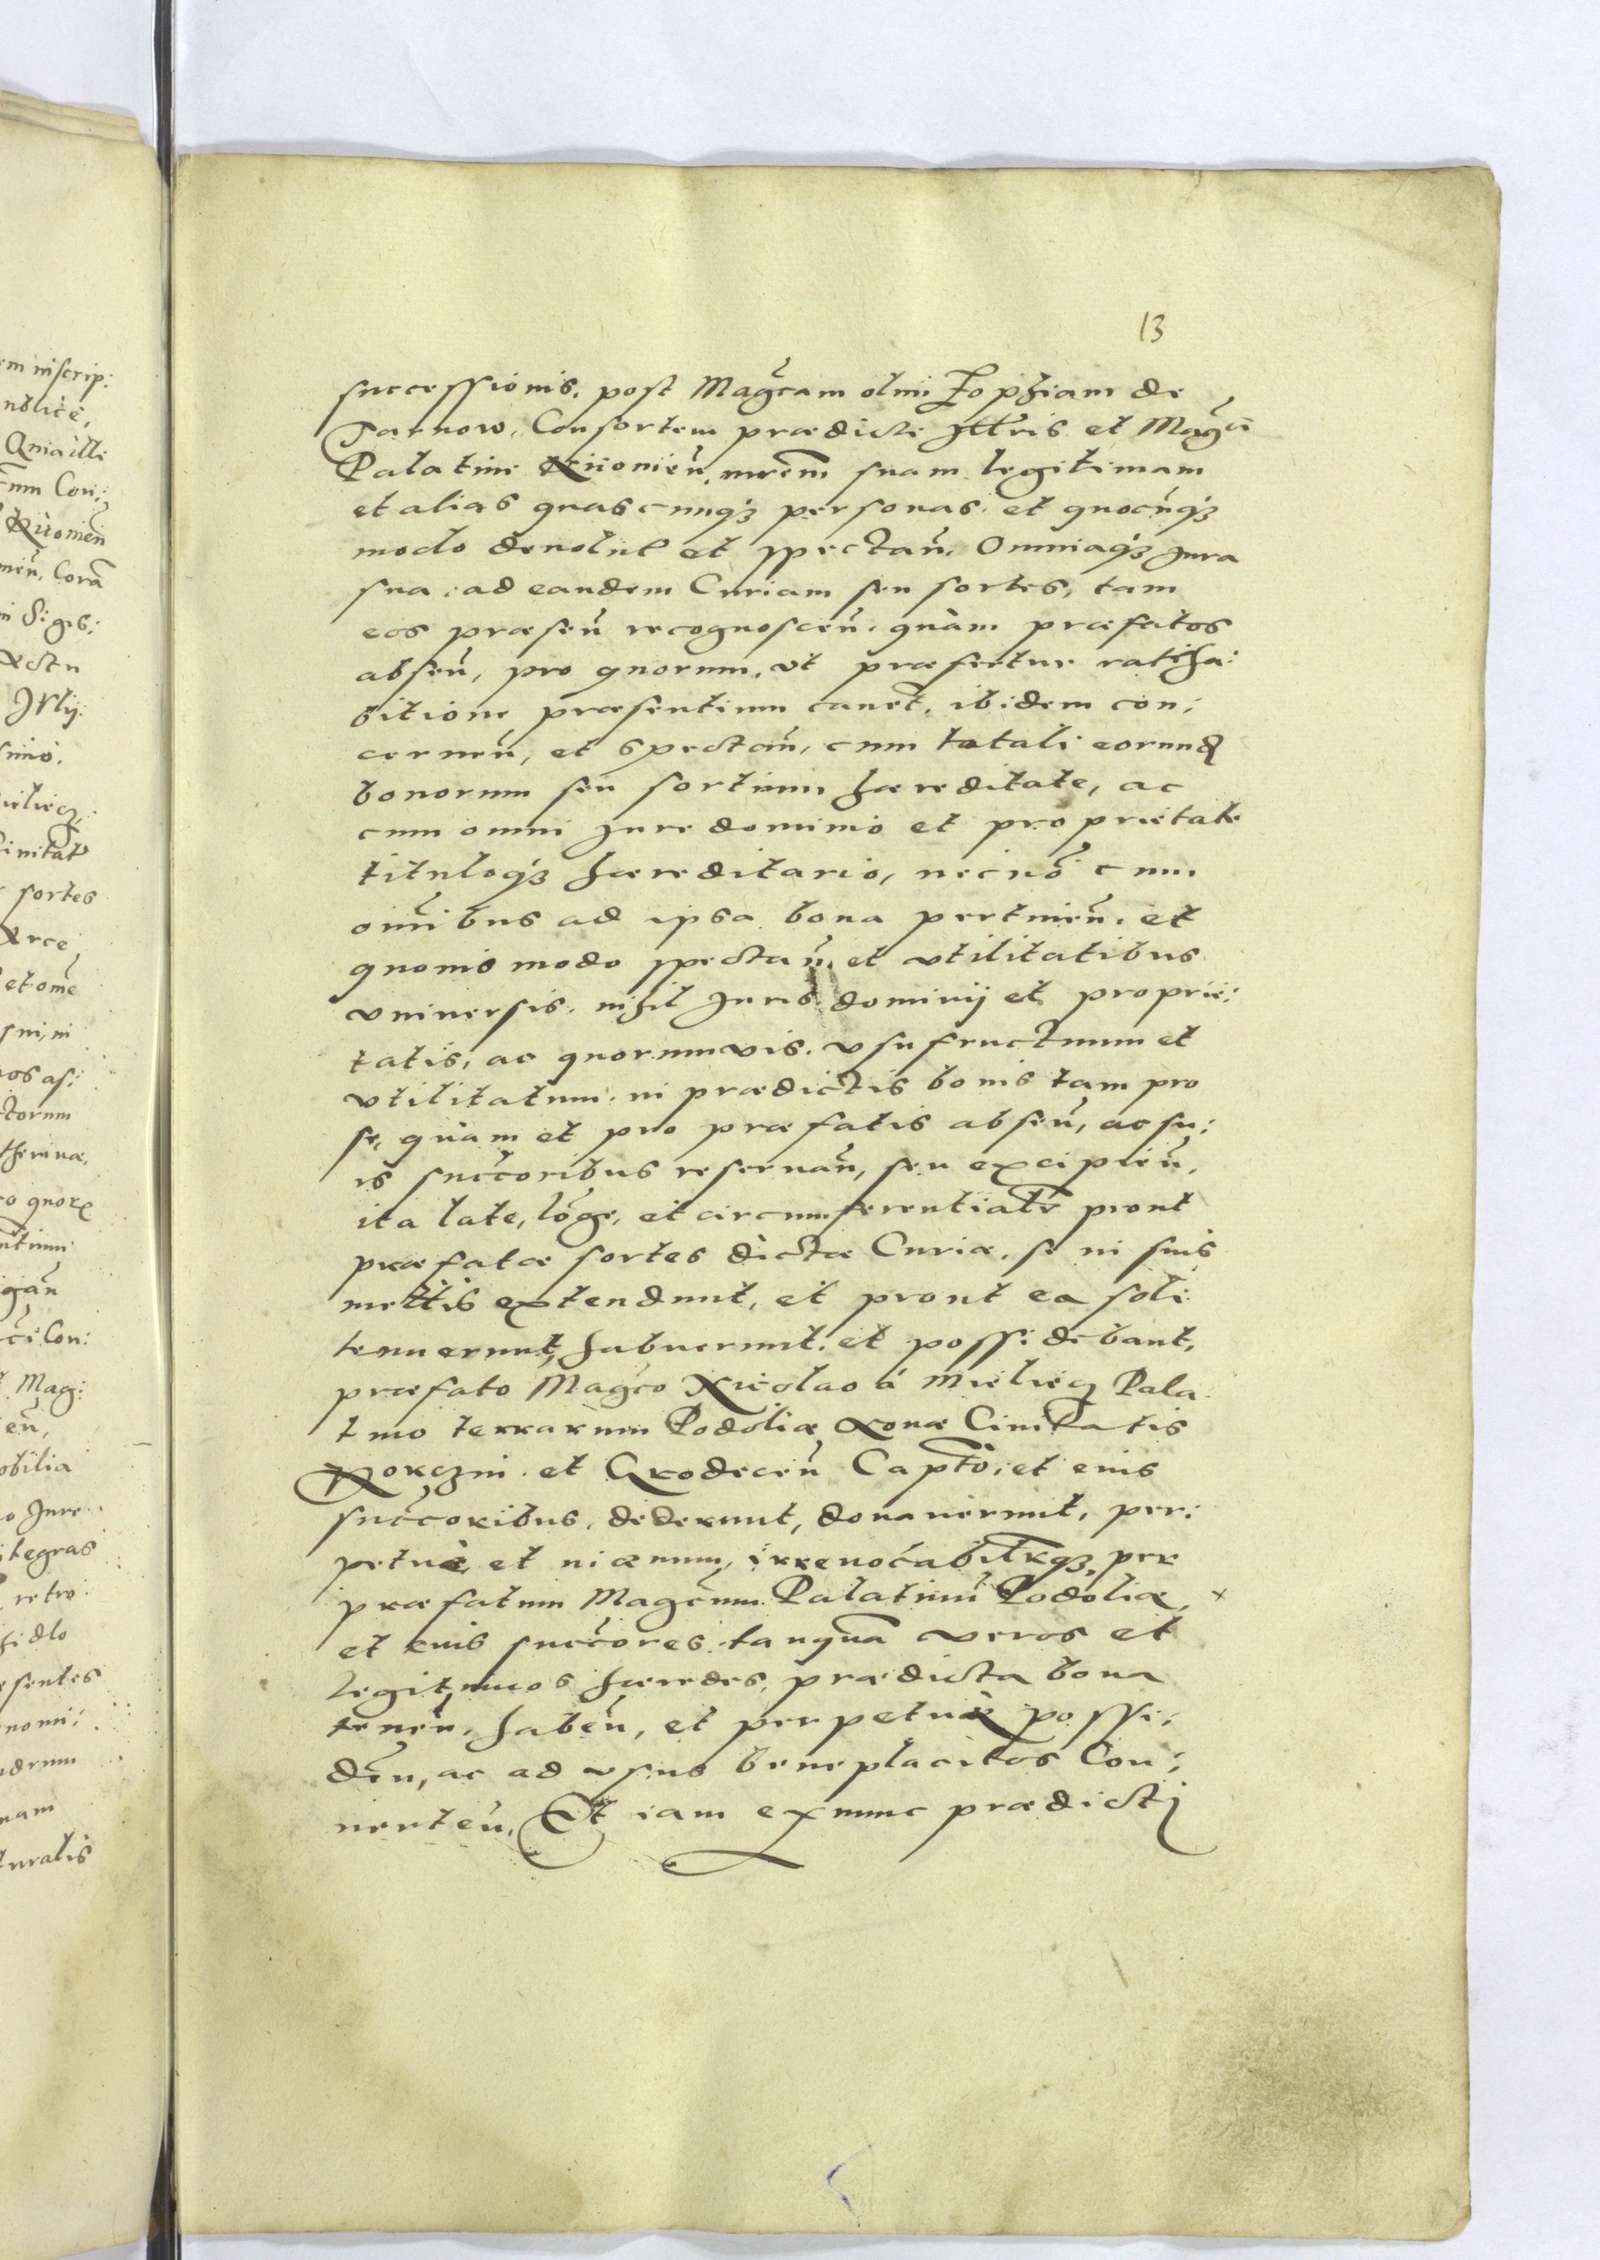 13
successionis, post Magc̃am olim Zophiam de
Tarnow, Consortem prædicti Jllr̃is et Magc̃i
Palatini Kiiouien̄, mr̃em suam legitimam
et alias quascunqꝫ personas, et quocūqꝫ
modo deuolut et spectan̄, Omniaqꝫ Jura
sua, ad eandem Curiam seu sortes, tam
eos præsen̄ recognoscen̄, quàm præfatos
absen̄, pro quorum, vt præfertur ratiha:
bitione præsentium cauet̃, ibidem con:
cernen̄, et spectan̄, cum totali eorund
bonorum seu sortium hæreditate, ac
cum omni Jure dominio et proprietate
tituloqꝫ hæreditario, necnõ cum
om̃ibus ad ipsa bona pertinen̄, et
quouis modo spectan̄ et vtilitatibus
vniuersis, nihil Juris dominij et proprie:
tatis, ac quorumvis, vsufructuum et
vtilitatum, in prædictis bonis tam pro
se, quàm et pro præfatis absen̄, ac su:
is succ̃oribus reseruan̄, seu excipien̄,
ita late, lõge, et circumferentialr̃ prout
præfatæ sortes dictæ Curiæ, se in suis
mettis extendunt, et prout ea soli
tenuerunt, habuerunt, et possidebant,
præfato Magc̃o Nicolao á Mieliecz Pala
tino terrarum Podoliæ Nouæ Ciuitatis
Korczin et Grodecen̄ Capt̃o, et eius
succ̃oribus, dederunt, donauerunt, per:
petuè et in æuum, irreuocabilr̃qꝫ, per
præfatum Magc̃um Palatinũ Podoliæ, x
et eius succ̃ores tanquã veros et
legitimos hæredes, prædicta bona
tenen̄, haben̄, et perpetuè possi:
den̄, ac ad vsus beneplacitos Con:
uerten̄, Et iam exnunc prædicti